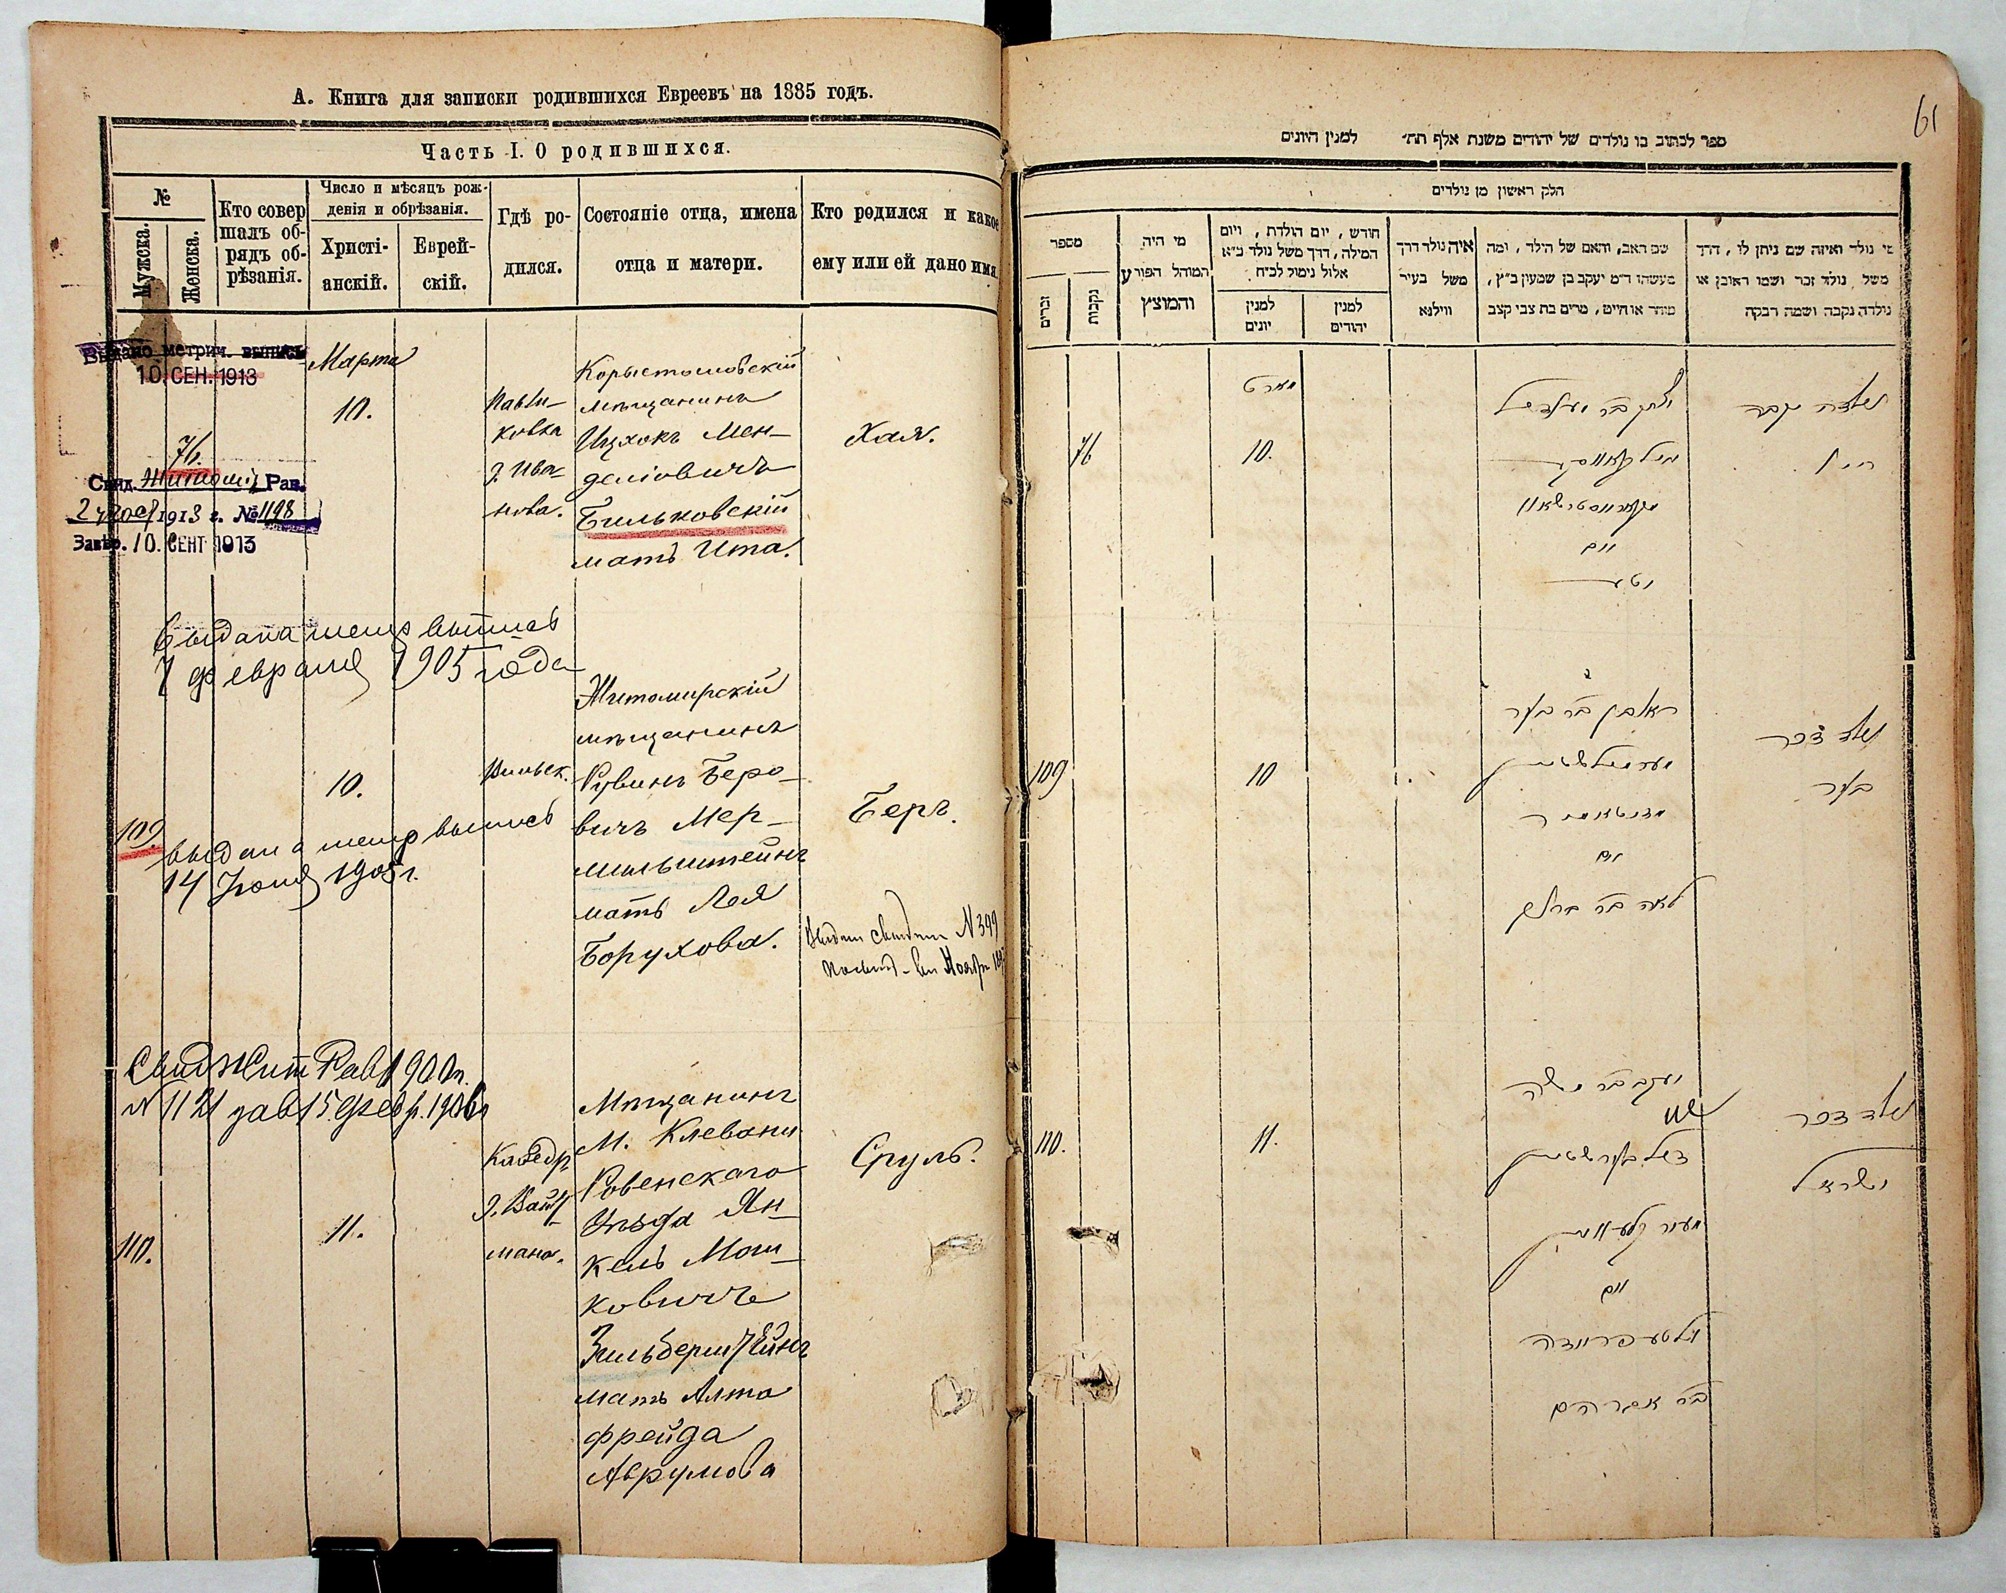 А. Книга для записки родившихся Евреевъ на 1885 годъ.
Часть I. О родившихся.
№
Мужска.
Женска.
Кто совер
шалъ об-
рядъ об-
рѣзанія.
Число и мѣсяцъ рож-
денія и обрѣзанія.
Христі-
анскій.
Еврей-
скій.
Гдѣ ро-
дился.
Состояніе отца, имена
отца и матери.
Кто родился и какое
ему или ей дано имя.
Выдано метрич. выпись
10 СЕН. 1913
76.
Свид. Житоміr. Рав.
1913 г. № 1198
Завѣр. 10. СЕНТ 1913
Марта
10.
Павли-
ковка
д. Ива
нова.
мѣщанинъ
Ицхокъ Мен-
деліовичъ
Бильковскій
мать Ита.
Хая.
Выдана метр выпись
7 февраля 1905 года
109.
выдана метр выпись
14 Іюня 1905 г.
10.
Вильск.
Житомирскій
мѣщанинъ
Рувинъ Беро-
вичъ Мер-
мильштейнъ
мать Лея
Борухова.
Беръ.
№ 399
Свид Жит Рав 1900 г.
№ 1121 завѣ 15 февр. 1906 г
110.
11.
Кафедр
д. Вайц-
мана.
Мѣщанинъ
м. Клевани
Ровенскаго
Уѣзда Ян-
кель Мош-
ковичъ
Зильберштейнъ
мать Алта
фрейда
Аврумова
Сруль.
61
ספר לכתוב בו נולדים של יהודים משנת אלף תת׳ למנין היונים
חלק ראשון מן נולדים
מספר
זכרים
נקבות
מי היה
המוהל הפורע
והמוצץ
חודש, יום הולדת, ויום
המילה, דרך משל נולד כ״א
אלול נימול לכ״ח
למנין
יונים
למנין
יהודים
איה נולד דרך
משל בעיר
ווילנא
שם האב, והאם של הילד, ומה
מעשהו ד״מ יעקב בן שמעון כ״ץ,
סוחר או חייט, מרים בת צבי קצב
מי נולד ואיזה שם ניתן לו, דרך
משל נולד זכר ושמו ראובן או
נולדה נקבה ושמה רבקה
76
מארט
10.
יצחק בר מענדיל
בילקאווסקי
ואם
איטע
נולדה נקבה
חיי׳
109
10
ראובן בר בער
מערמילשטיין
מזיטאמיר
ואם
לאה בר ברוך
נולד זכר
בער
110.
11.
יעקב בר משה
זילבערשטיין
ואם
אלטע פריידה
בר אברהם
נולד זכר
ישראל